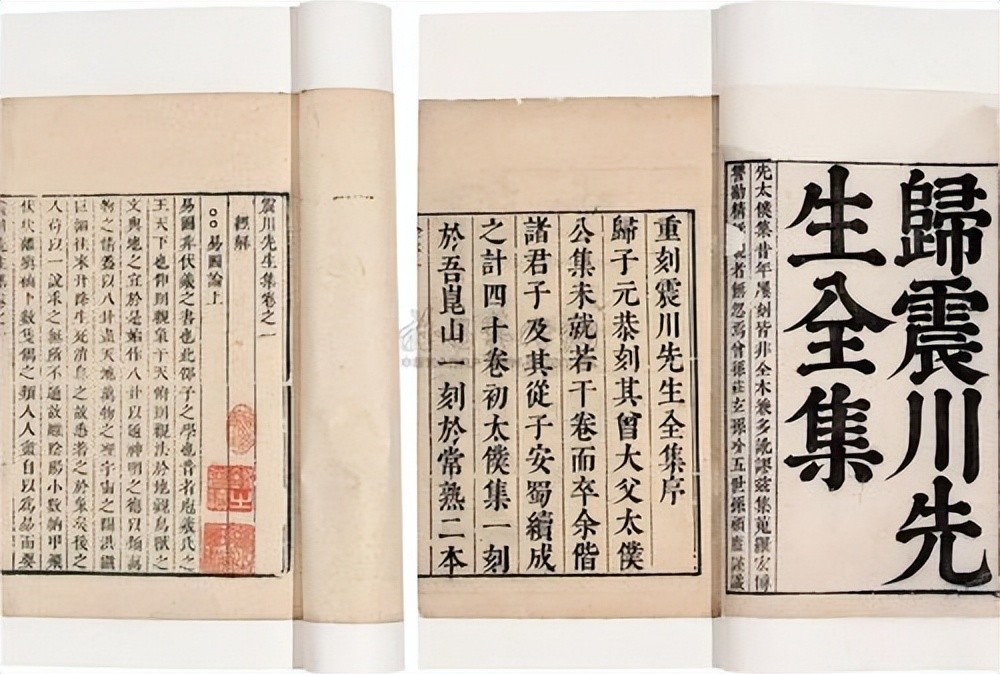 歸震川先
生全集
先太僕集昔年屢刻皆非全本兼多訛謬茲集蒐羅宏博
讐勘精者無忽焉曾孫莊玄孫玠五世孫謹識
重刻震川先生全集序
歸子元恭刻其曾大父太僕
公集未就若干卷而卒余偕
諸君子及其從子安蜀續成
之計四十卷初太僕集一刻
於吾崑山一刻於常熟二本
震川先生集卷之一
經解
○○易圖論上
易圖非伏羲之書也此邵子之學也昔者庖羲氏之
王天下也仰則觀象于天俯則觀法於地觀鳥獸之
文與地之宜於是始作八卦以通神明之德以類萬
物之情蓋以八卦盡天地萬物之理宇宙之間洪纖
巨細往來升降生死消息之故悉著之於象矣後之
人苟以一說求之無所不通故雖陰陽小數納甲飛
伏坎離卜數隻偶之類人人盡自以爲易而要